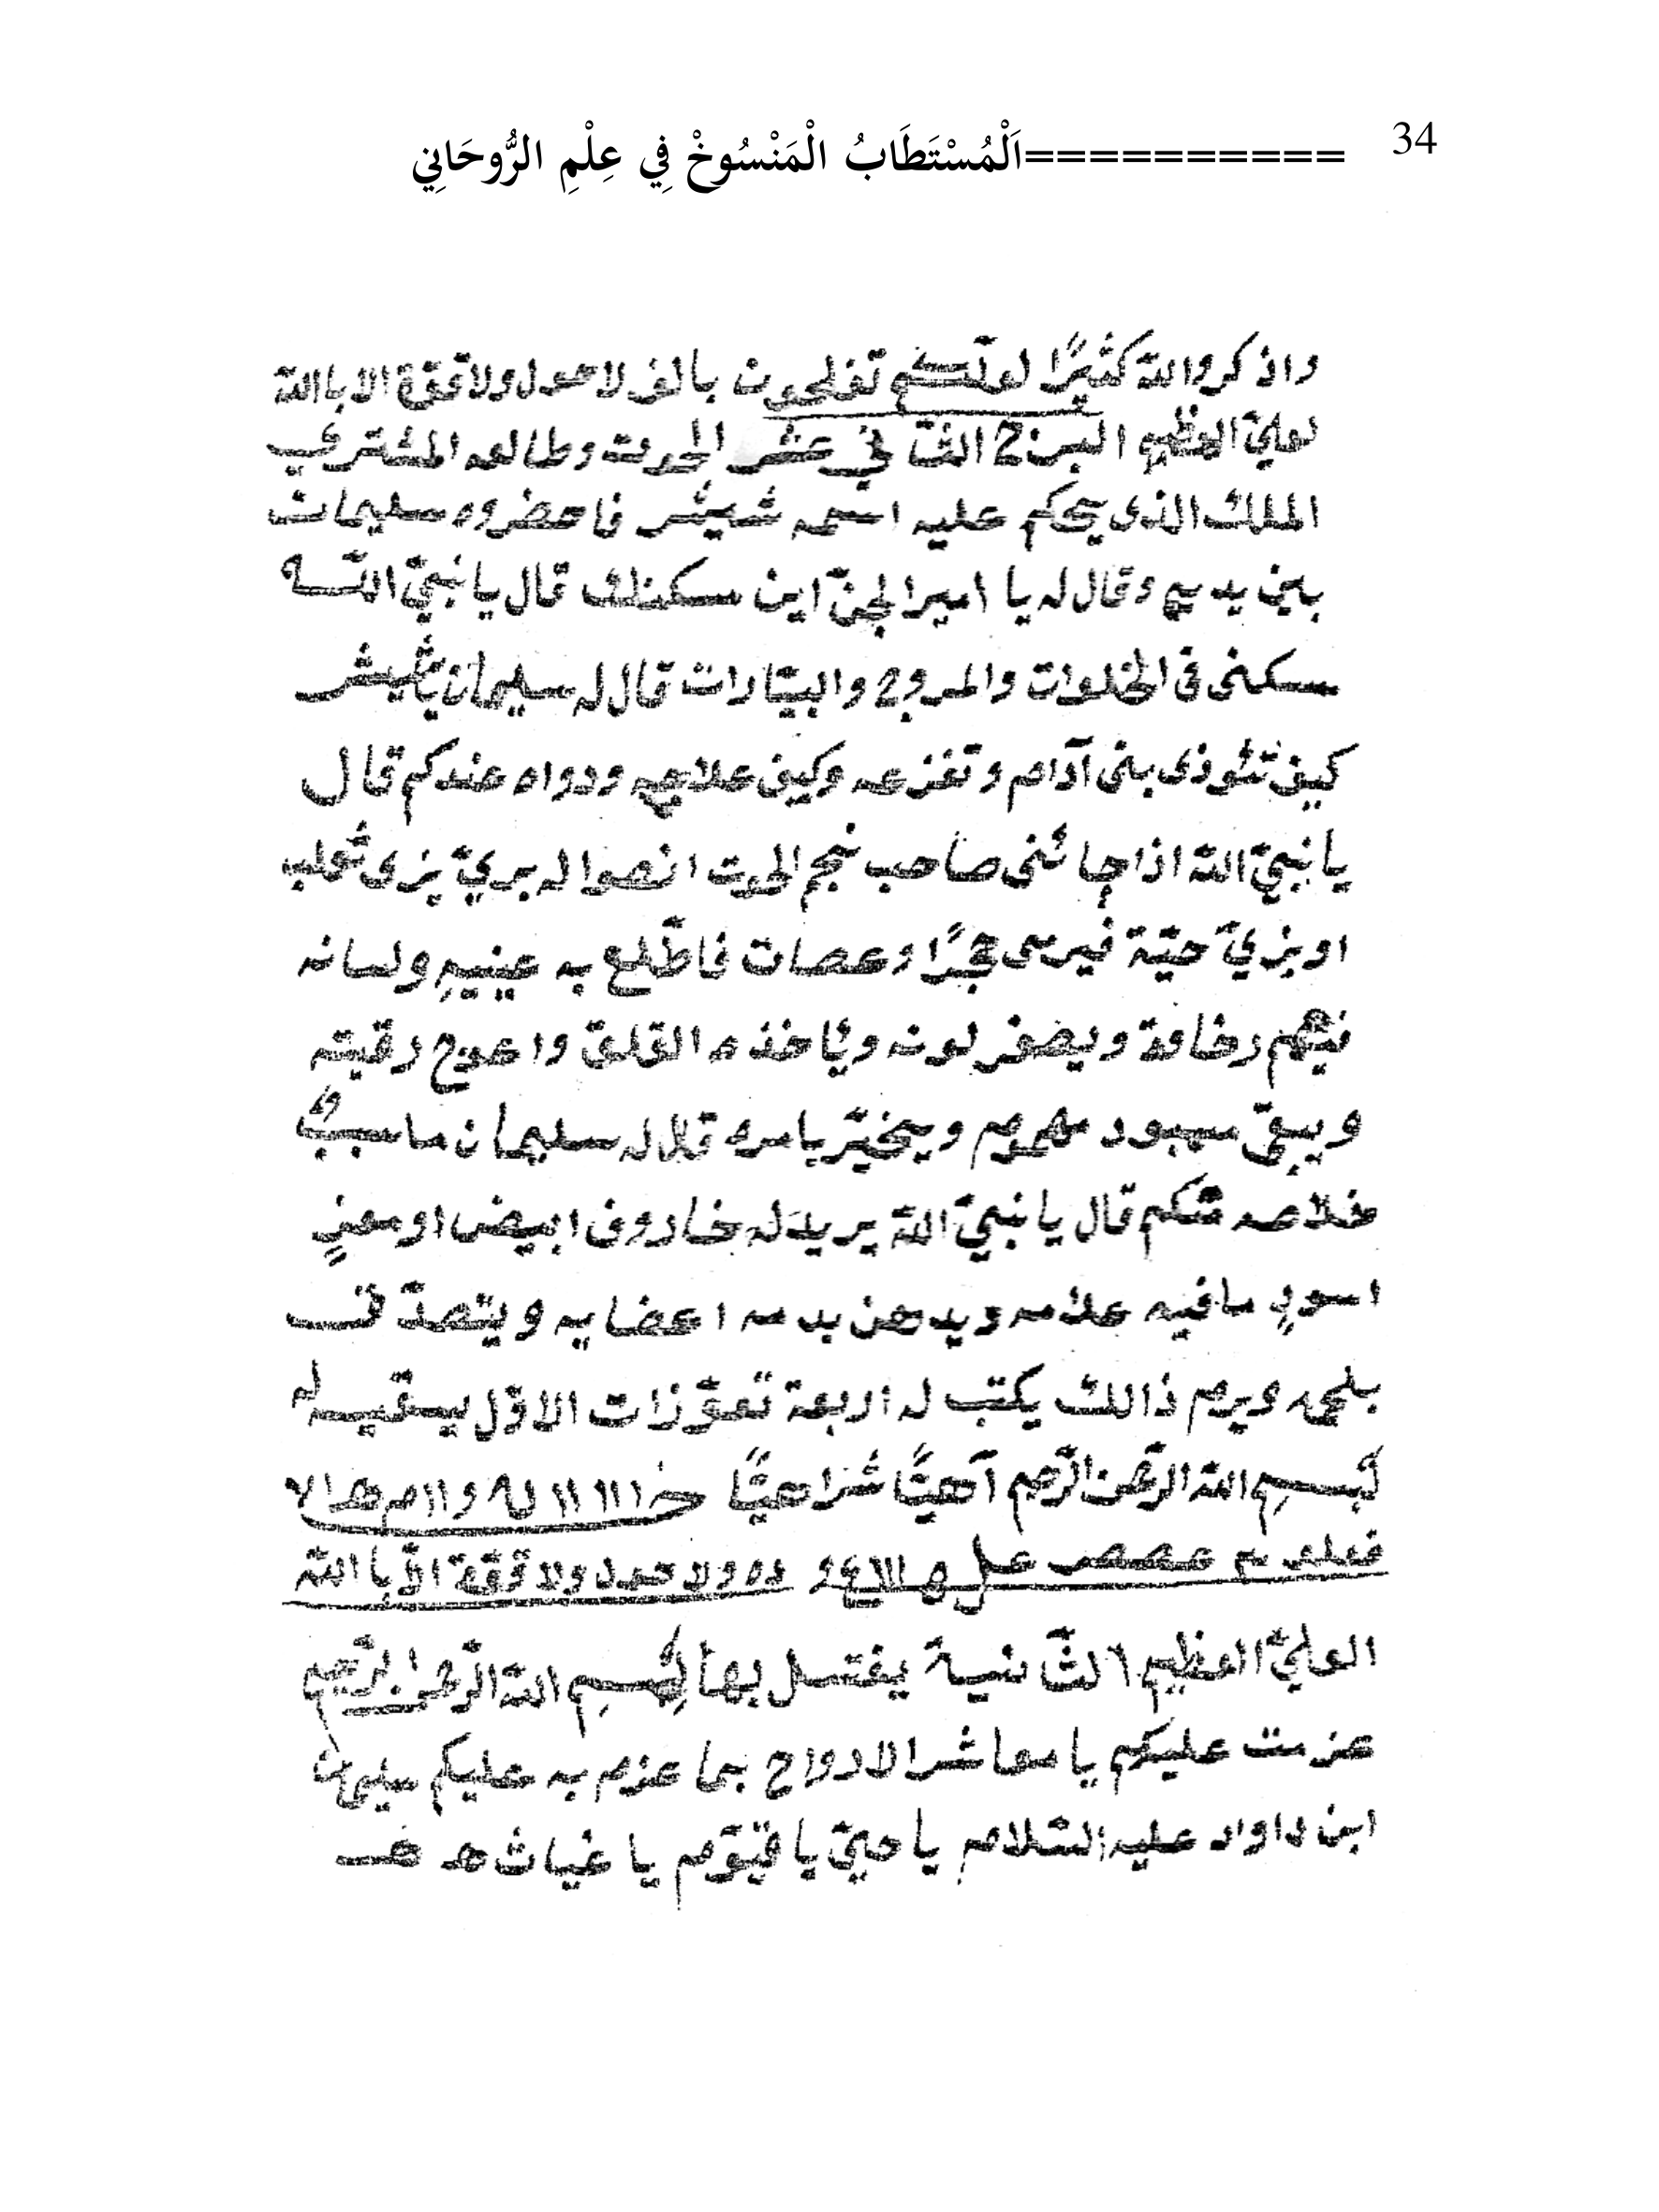 34 ==========اَلْمُسْتَطَابُ الْمَنْسُوخْ فِي عِلْمِ الرُّوحَانِي
واذكروالله كثيرًا لعلّكم تفلحون بالف لاحول ولاقوّة الا باالله
لعليّ العظيم البرج الثّاني عشر الحوت وطالعه المشتري
الملك الذى يحكم عليه اسمه شييشر فاحضروه سليمان
بين يديه وقال له يا امير الجنّ اين سكنك قال يا نبيّ اللّه
سكنى فى الخلوات والمروج والبيّارات قال له سليمان يا شييشر
كيف تئوذى بنى آدام وتفزعه وكيف علاجه ودواه عندكم قال
يا نبيّ اللّه اذا جائنى صاحب نجم الحوت انصوا له بريّ بزى ثعلب
او بزيّ حيّة فيرمى حجرًا وعصات فاطّلع به عينيهِ ولسانه
رخافة ويصفر لونه ويأخذه القلق واعوج رقبته
ويبقى مهموم ويحيّر بامره قال له سليمان ما سبب
خلاصه منكم قال يا نبيّ اللّه يريد له خاروف ابيض او معزٍ
اسودٍ ما فيه علامه ويدهن بدمه اعضايه ويتصدّق
بلحمه ويرم ذالك يكتب له اربعة تعوّزات الاوّل يسقيه له
بسمِ اللّه الرّحمن الرّحيم آهيًّا شراهيًّا
ولا حول ولا قوّة الّا باالله
العليّ العظيم الثّانية يغتسل بها بسمِ اللّه الرّحمن الرّحيم
عزمت عليكم يا معاشر الارواح بما عزم به عليكم سليمان
ابن داواد عليه السّلام يا حيّ يا قيّوم يا غياث